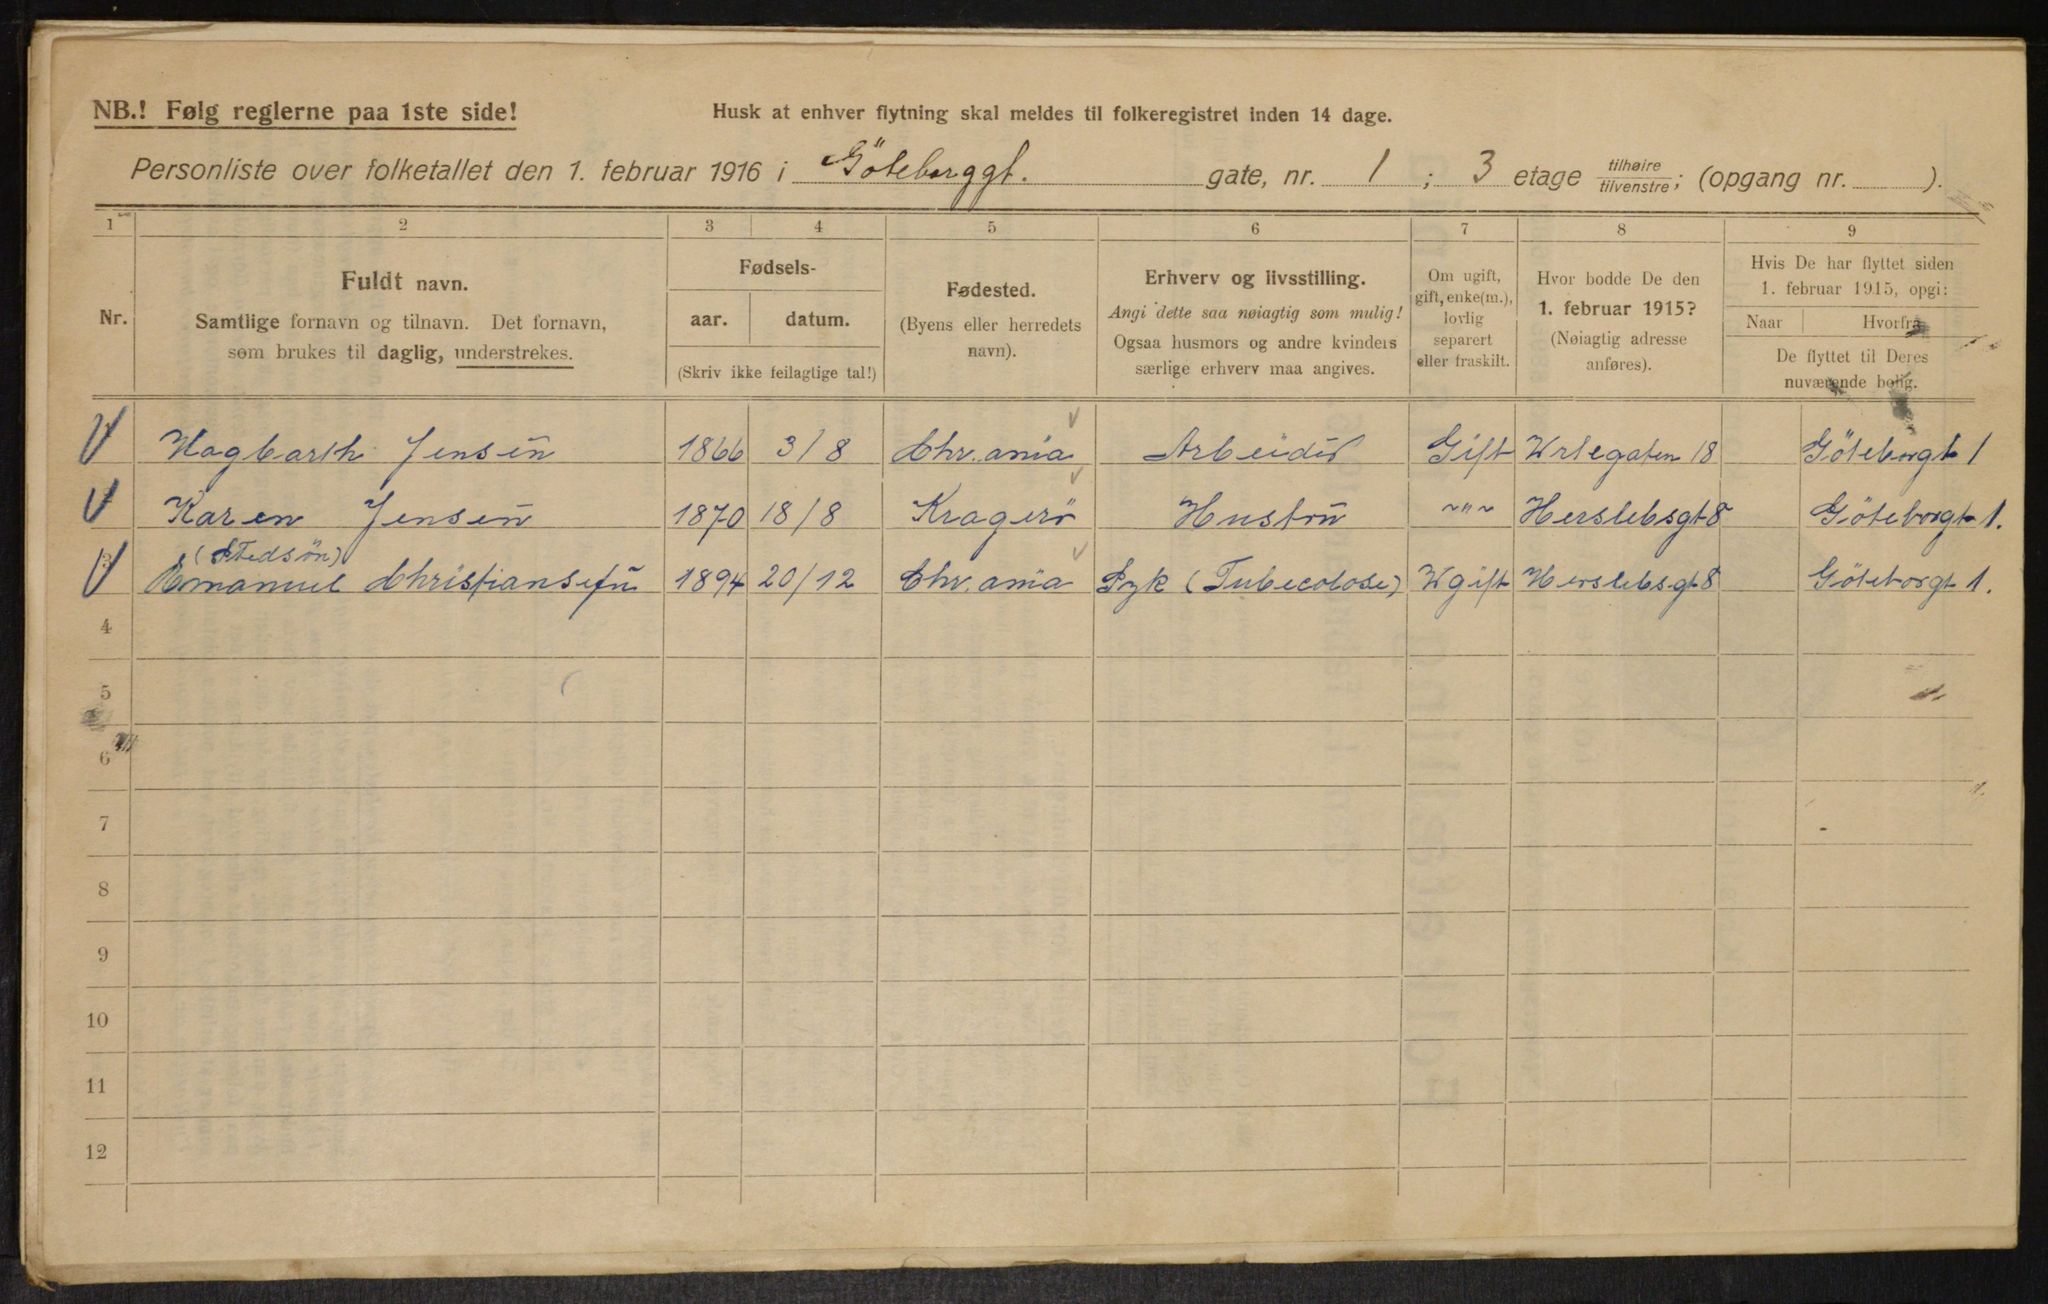 NB.! Følg reglerne paa 1ste side!
Husk at enhver flytning skal meldes til folkeregistret inden 14 dage.
Personliste over folketallet den 1. februar 1916 i Göteborggt. gate, nr. 1 ; 3 etage tilhøire/tilvenstre; (opgang nr. ).
1 2 3 4 5 6 7 8 9
Nr.
Fuldt navn.
Samtlige fornavn og tilnavn. Det fornavn,
som brukes til daglig, understrekes.
Fødsels-
aar. datum.
(Skriv ikke feilagtige tal!)
Fødested.
(Byens eller herredets
navn).
Erhverv og livsstilling.
Angi dette saa nøiagtig som mulig!
Ogsaa husmors og andre kvinders
særlige erhverv maa angives.
Om ugift,
gift, enke(m.),
lovlig
separert
eller fraskilt.
Hvor bodde De den
1. februar 1915?
(Nøiagtig adresse
anføres).
Hvis De har flyttet siden
1. februar 1915, opgi:
Naar Hvorfra
De flyttet til Deres
nuværende bolig.
Hagbarth Jensen 1866 3/8 Chr.ania Arbeider Gift Urtegaten 18 Göteborgt 1
Karen Jensen 1870 18/8 Kragerö Hustru ~"~ Herslebsgt 8 Göteborgt 1.
(Stedsön)
3 Emanuel Christiansen 1894 20/12 Chr.ania Syk (Tubecolose) Ugift Herslebsgt 8 Göteborgt 1.
4
5
6
7
8
9
10
11
12